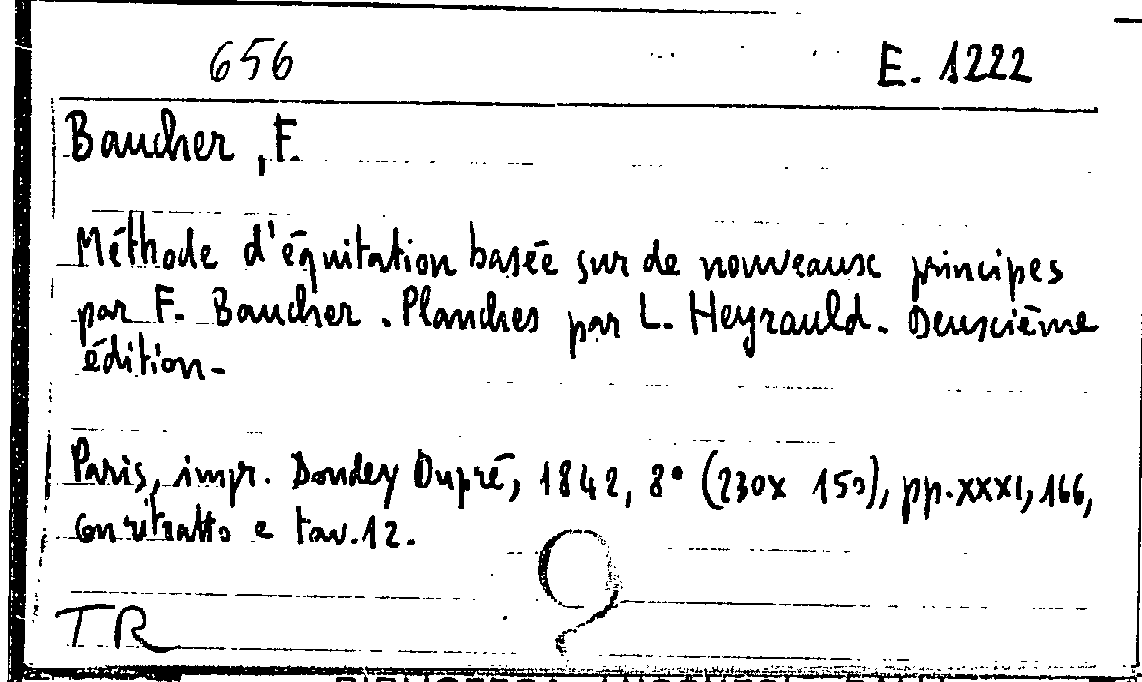 656 E. 1222
Baucher, F.
Méthode d'équitation basée sur de nouveaux principes
par F. Baucher. Planches par L. Heyrauld. Deuxième
édition.
Paris, impr. Dondey Dupré, 1842, 8° (230x 150), pp. XXXI, 166,
con ritratto e tav. 12.
TR